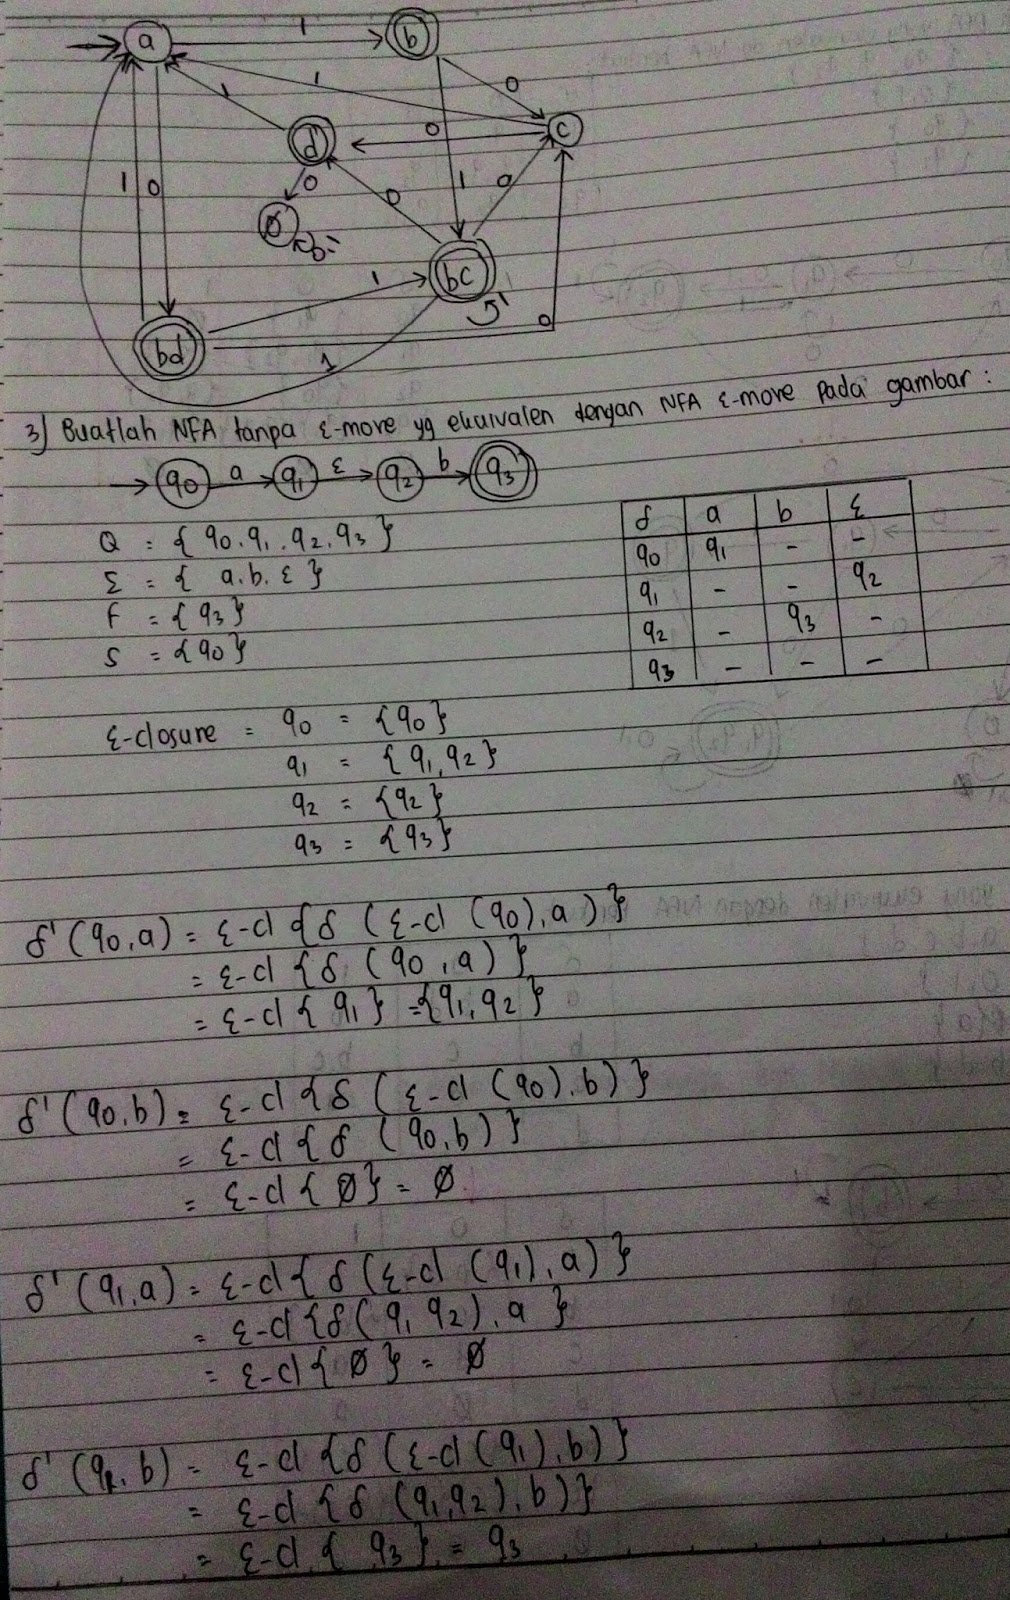 a 1 b
1 0
1 d 0 c
1 0 0 0 1 0
∅
bc
1 1
bd 1 0
3) Buatlah NFA tanpa ε-move yg ekuivalen dengan NFA ε-move pada gambar :
q0 a q1 ε q2 b q3
Q = { q0. q1. q2. q3 }
Σ = { a. b. ε }
F = { q3 }
S = { q0 }
δ a b ε
q0 q1 - -
q1 - - q2
q2 - q3 -
q3 - - -
ε-closure = q0 = {q0}
q1 = {q1, q2}
q2 = {q2}
q3 = {q3}
δ'(q0,a) = ε-cl {δ (ε-cl (q0), a)}
= ε-cl {δ (q0, a)}
= ε-cl { q1 } = {q1, q2}
δ'(q0,b) = ε-cl {δ (ε-cl (q0). b)}
= ε-cl {δ (q0, b)}
= ε-cl { ∅ } = ∅
δ'(q1,a) = ε-cl {δ (ε-cl (q1), a)}
= ε-cl {δ(q1 q2), a }
= ε-cl { ∅ } = ∅
δ'(q1, b) = ε-cl {δ (ε-cl (q1), b)}
= ε-cl {δ (q1,q2), b)}
= ε-cl { q3 } = q3